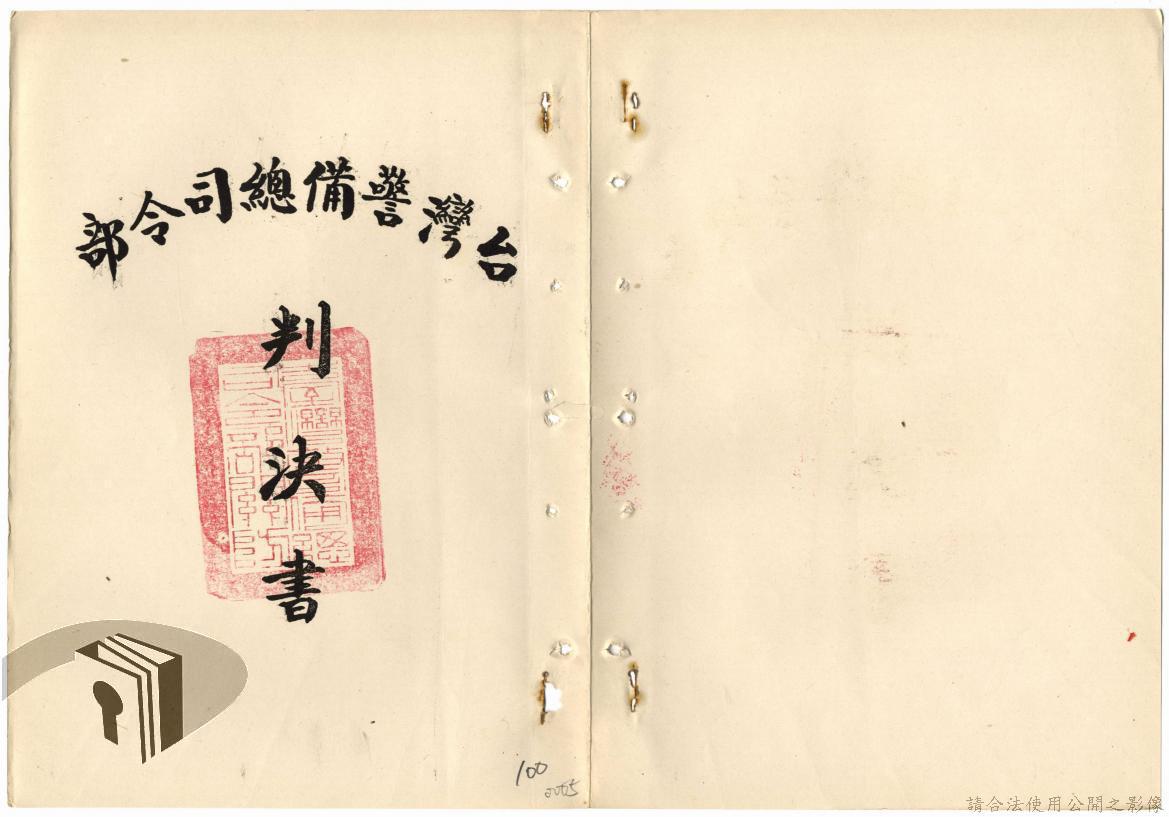 台灣警備總司令部
判決書
100
0005
請合法使用公開之影像